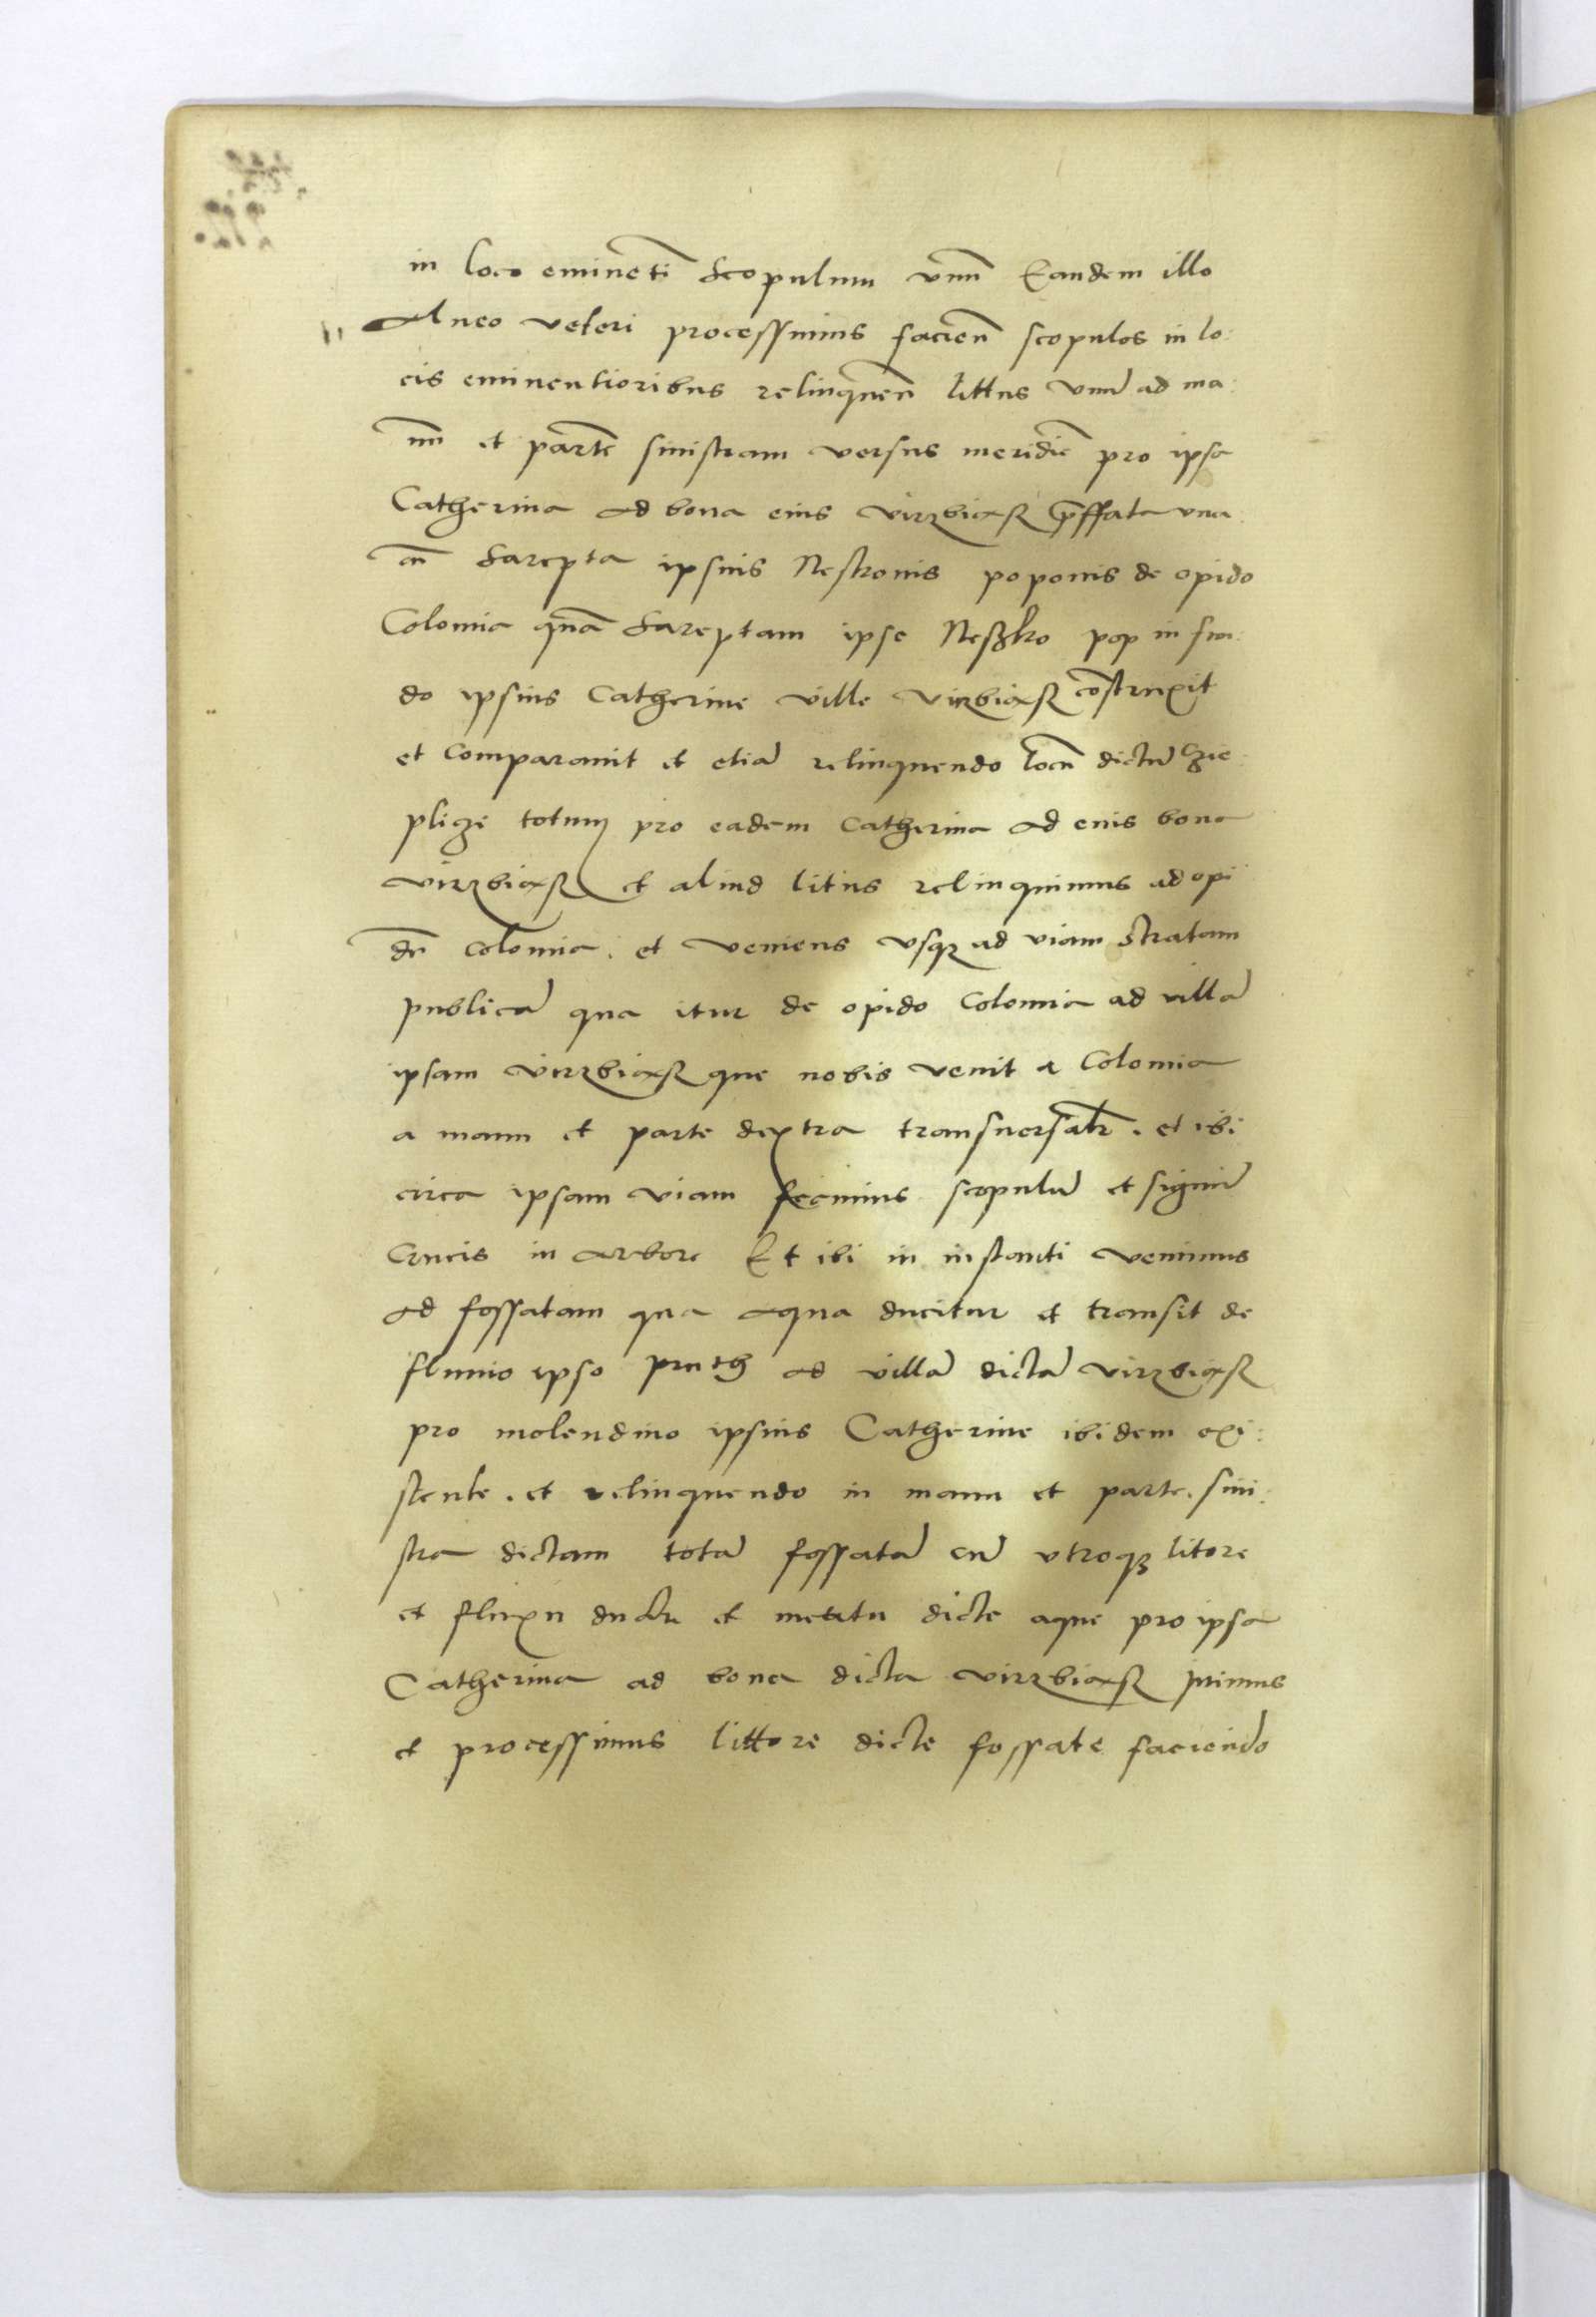 in loco emineti Scopulum vnu Eandem illo
Alueo veteri processimus facien scopulos in lo:
cis eminentioribus relinquen littus vnu ad ma:
nu et parte sinistram versus meridie pro ipsa
Catherina ad bona eius virzbiąsz pffata vna
cu Sarepta ipsius Nestronis poponis de opido
Colomia qua Sareptam ipse Neszko pop in fun:
do ipsius Catherine ville virzbiąsz costruxit
et comparauit et etia relinquendo locu dictu Czie:
plicze totum pro eadem Catherina ad euis bona
virzbiąsz et aliud litus relinquimus ad opi
du Colomia. et veniens vsqz ad viam stratam
publica qua itur de opido Colomia ad villa
ipsam virzbiąsz que nobis venit a Colomia
a manu et parte dextra transuersalr. et ibi
circa ipsam viam fecimus scopulu et signu
Crucis in arbore Et ibi in instanti venimus
ad fossatam qua aqua ducitur et transit de
fluuio ipso pruth ad villa dicta virzbiąsz
pro molendino ipsius Catherine ibidem exi:
stente. et relinquendo in manu et parte. sini:
stra dictam tota fossata cu vtroqz litore
et fluxu ductu et meatu dicte aque pro ipsa
Catherina ad bona dicta virzbiąsz iuimus
et processimus littore dicte fossate faciendo